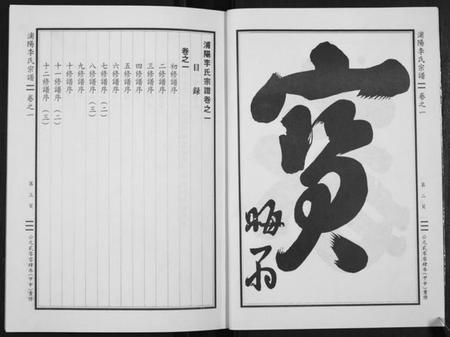 浦陽李氏宗譜
卷之一
第二頁
寶
晦翁
浦陽李氏宗譜卷之一
目錄
卷之一
初修譜序
二修譜序
三修譜序
四修譜序
五修譜序
六修譜序
七修譜序(二)
八修譜序(三)
九修譜序
十修譜序
十一修譜序(二)
十二修譜序(三)
浦陽李氏宗譜
卷之一
第三頁